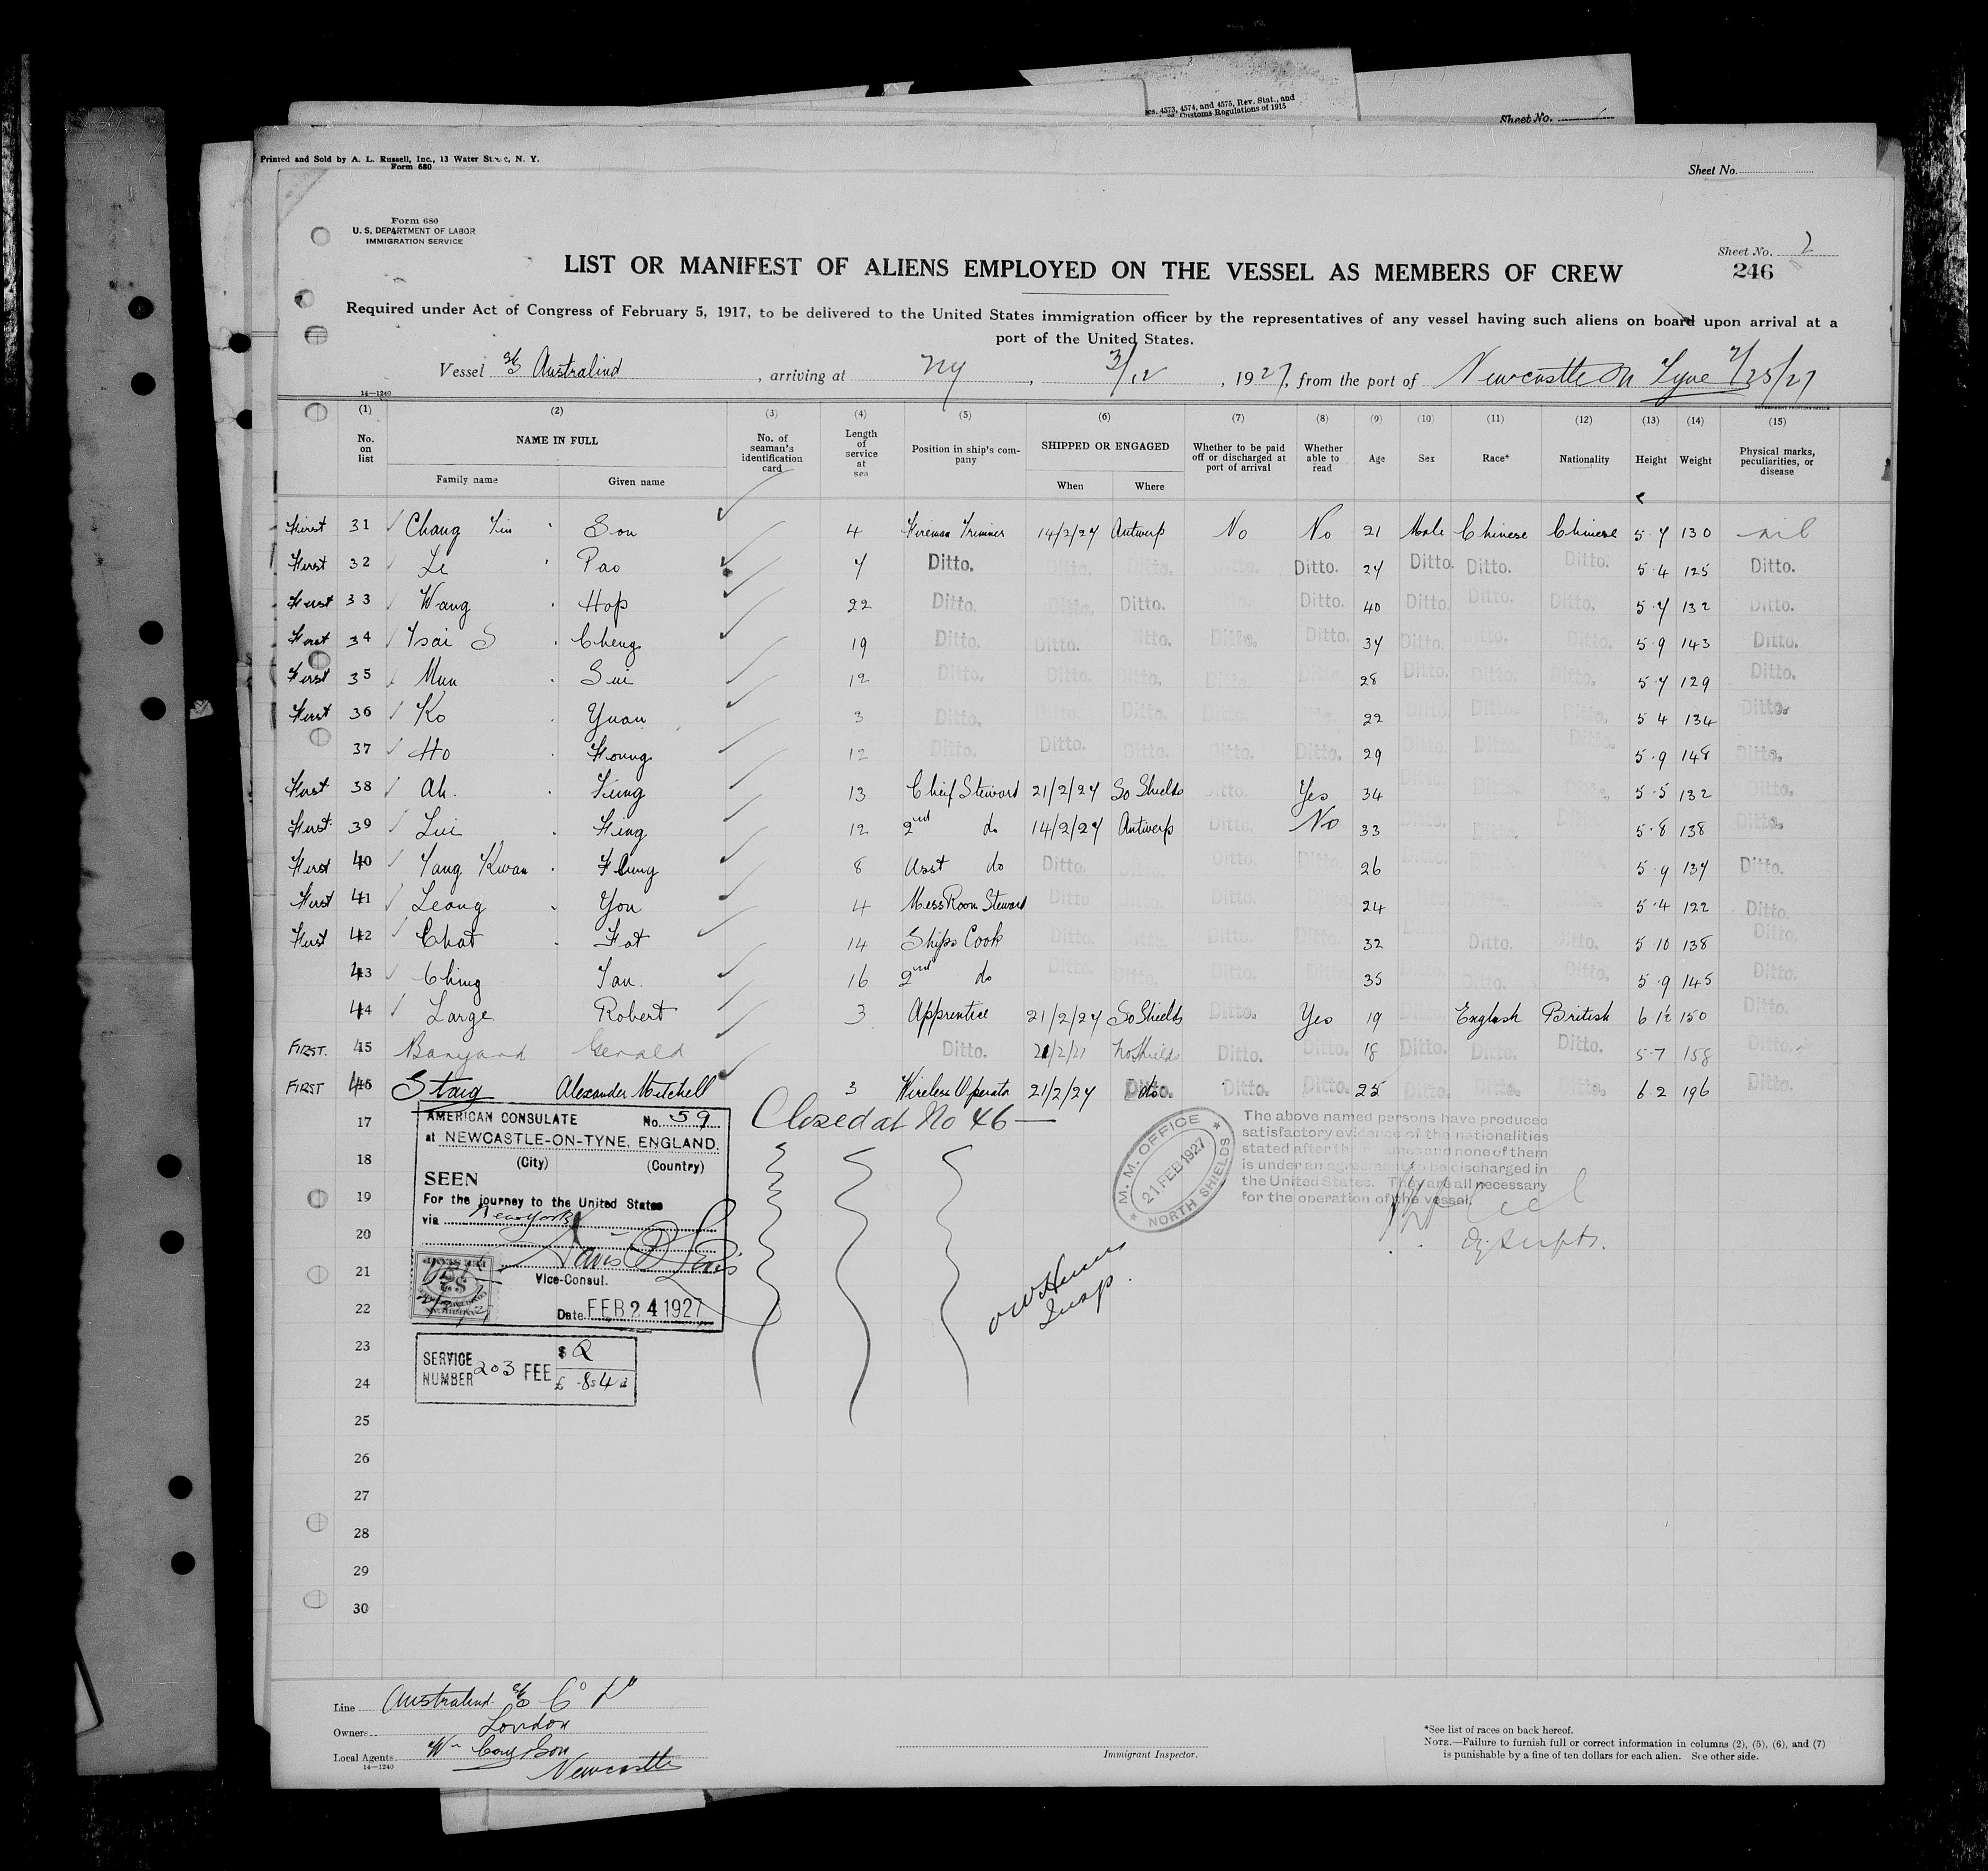 es. 4573, 4574, and 4575, Rev. Stat., and
Customs Regulations of 1915
Sheet No.
Printed and Sold by A. L. Russell, Inc., 13 Water St., N. Y.
Form 680
Sheet No.
Form 680
U. S. DEPARTMENT OF LABOR
IMMIGRATION SERVICE
Sheet No. 2
246
LIST OR MANIFEST OF ALIENS EMPLOYED ON THE VESSEL AS MEMBERS OF CREW
Required under Act of Congress of February 5, 1917, to be delivered to the United States immigration officer by the representatives of any vessel having such aliens on board upon arrival at a
port of the United States.
Vessel S/S Australind, arriving at NY, 3/12, 1927, from the port of Newcastle On Tyne 2/25/27
14—1240
(1) (2) (3) (4) (5) (6) (7) (8) (9) (10) (11) (12) (13) (14) (15)
No. on list NAME IN FULL Family name Given name No. of seaman's identification card Length of service at sea Position in ship's company SHIPPED OR ENGAGED When Where Whether to be paid off or discharged at port of arrival Whether able to read Age Sex Race* Nationality Height Weight Physical marks, peculiarities, or disease
First 31 Chang Yin Son 4 Fireman Trimmer 14/2/27 Antwerp No No 21 Male Chinese Chinese 5 7 130 nil
First 32 Le Pao 7 Ditto. Ditto. Ditto. Ditto. Ditto. 27 Ditto. Ditto. Ditto. 5 4 125 Ditto.
First 33 Wang Hop 22 Ditto. Ditto. Ditto. Ditto. 40 Ditto. Ditto. Ditto. 5 7 132 Ditto.
First 34 Tsai S Cheng 19 Ditto. Ditto. Ditto. Ditto. Ditto. 37 Ditto. Ditto. Ditto. 5 9 143 Ditto.
First 35 Mun Sui 12 Ditto. Ditto. Ditto. Ditto. 28 Ditto. Ditto. Ditto. 5 7 129 Ditto.
First 36 Ko Yuan 3 Ditto. Ditto. Ditto. Ditto. 22 Ditto. Ditto. 5 4 134 Ditto.
37 Ho Foung 12 Ditto. Ditto. Ditto. Ditto. Ditto. 29 Ditto. Ditto. Ditto. 5 9 148 Ditto.
First 38 Ah. Fung 13 Cheif Steward 21/2/27 So Shields Ditto. Yes 34 Ditto. 5 5 132 Ditto.
First 39 Lui Fing 12 2nd do 14/2/27 Antwerp Ditto. No 33 Ditto. 5 8 138 Ditto.
First 40 Yang Kwan Fung 8 Asst do Ditto. Ditto. Ditto. 26 5 9 137 Ditto.
First 41 Leong You 4 Mess Room Steward Ditto. Ditto. Ditto. 24 5 4 122 Ditto.
First 42 Chat Fat 14 Ships Cook Ditto. Ditto. Ditto. Ditto. 32 Ditto. Ditto. 5 10 138 Ditto.
43 Ching Tan. 16 2nd do Ditto. Ditto. Ditto. Ditto. 35 Ditto. Ditto. Ditto. 5 9 145 Ditto.
44 Large Robert 3 Apprentice 21/2/27 So Shields Ditto. Yes 19 English British 6 1½ 150 Ditto.
FIRST. 45 Banyard Gerald Ditto. 21/2/27 No Shields Ditto. Ditto. 18 Ditto. Ditto. Ditto. 5 7 158 Ditto.
FIRST 46 Staig Alexander Mitchell 3 Wireless Operator 21/2/27 do Ditto. Ditto. 25 Ditto. Ditto. Ditto. 6 2 196 Ditto.
17
18
19
20
21
22
23
24
25
26
27
28
29
30
Closed at No 46 —
AMERICAN CONSULATE No. 59
at NEWCASTLE-ON-TYNE, ENGLAND.
(City) (Country)
SEEN
For the journey to the United States
via New York
Vice-Consul.
Date FEB 24 1927
SERVICE NUMBER 203 FEE $ 2
£ 8s 4d
M. M. OFFICE
21 FEB 1927
NORTH SHIELDS
The above named persons have produced
satisfactory evidence of the nationalities
stated after their names and none of them
is under an agreement to be discharged in
the United States. They are all necessary
for the operation of the vessel.
Dy. Supt.
Insp.
Line Australind S/S Co Ld
Owners London
Local Agents Wm Cory & Son
Newcastle
14—1240
Immigrant Inspector.
*See list of races on back hereof.
NOTE.—Failure to furnish full or correct information in columns (2), (5), (6), and (7)
is punishable by a fine of ten dollars for each alien. See other side.